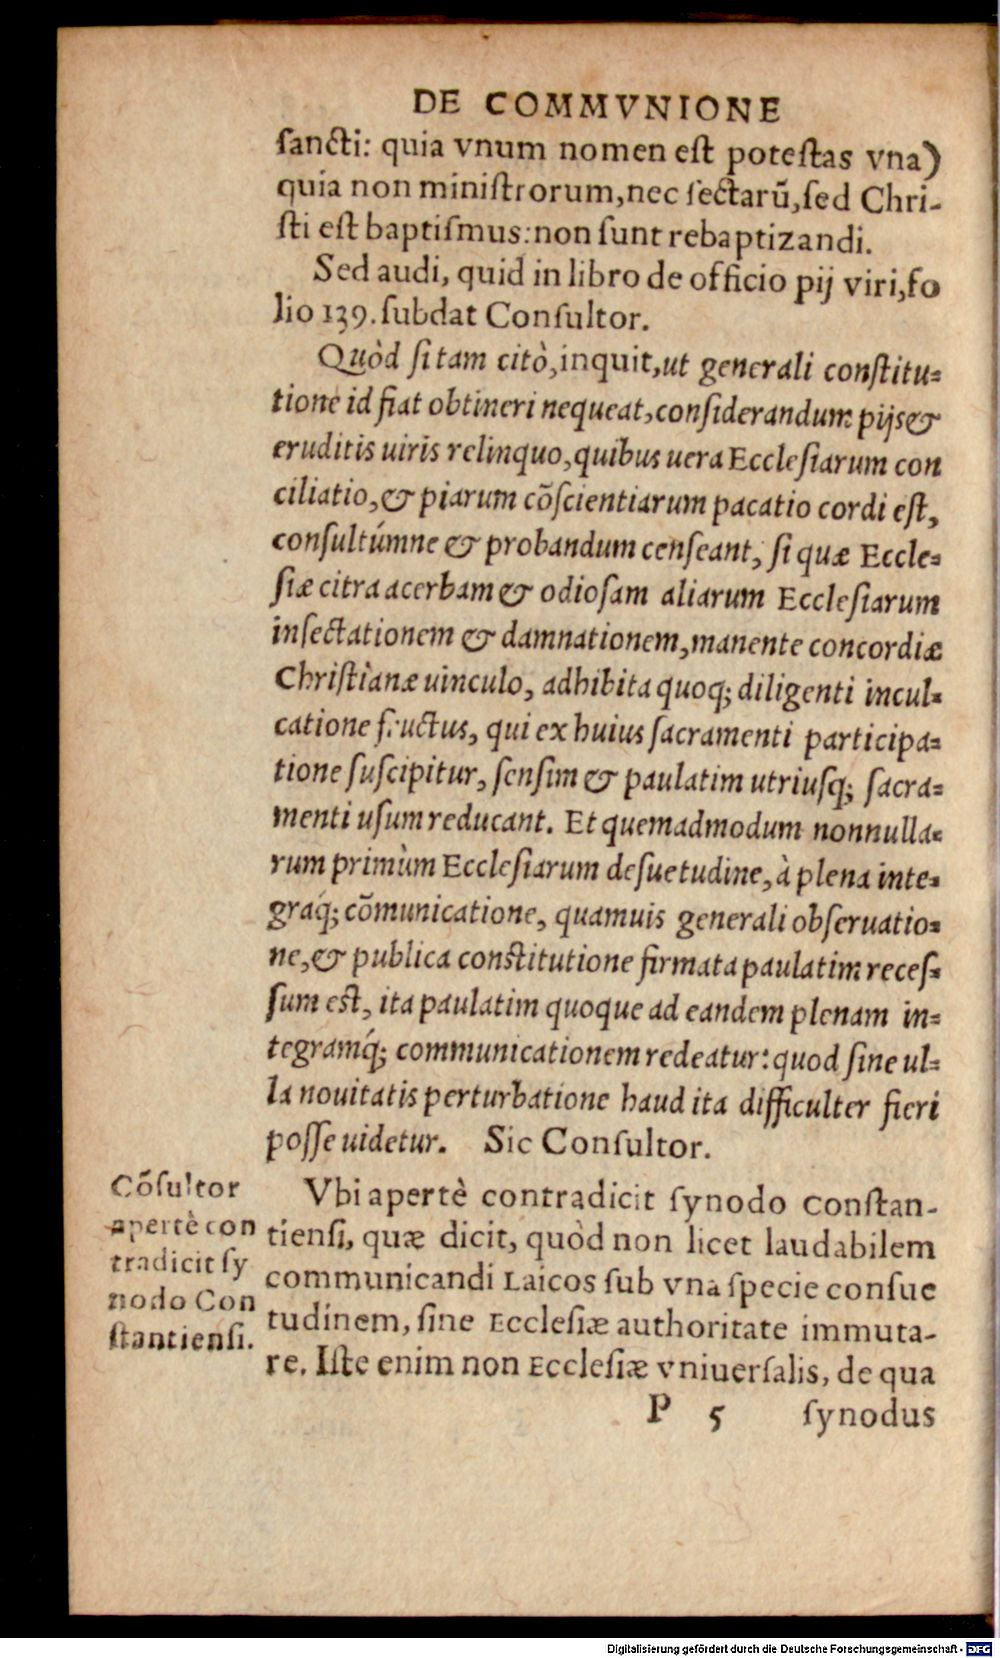 DE COMMVNIONE
sancti: quia vnum nomen est potestas vna)
quia non ministrorum, nec sectarū, sed Chri-
sti est baptismus: non sunt rebaptizandi.
Sed audi, quid in libro de officio pij viri, fo
lio 139. subdat Consultor.
Quòd si tam citò, inquit, ut generali constitu=
tione id fiat obtineri nequeat, considerandum pijs &
eruditis uiris relinquo, quibus uera Ecclesiarum con
ciliatio, & piarum cōscientiarum pacatio cordi est,
consultúmne & probandum censeant, si quæ Eccle=
siæ citra acerbam & odiosam aliarum Ecclesiarum
insectationem & damnationem, manente concordiæ
Christianæ uinculo, adhibita quoq; diligenti incul=
catione fructus, qui ex huius sacramenti participa=
tione suscipitur, sensim & paulatim utriusq; sacra=
menti usum reducant. Et quemadmodum nonnulla=
rum primùm Ecclesiarum desuetudine, à plena inte=
graq́; cōmunicatione, quamuis generali obseruatio=
ne, & publica constitutione firmata paulatim reces=
sum est, ita paulatim quoque ad eandem plenam in=
tegramq́; communicationem redeatur: quod sine ul=
la nouitatis perturbatione haud ita difficulter fieri
posse uidetur. Sic Consultor.
Vbi apertè contradicit synodo Constan-
tiensi, quæ dicit, quòd non licet laudabilem
communicandi Laicos sub vna specie consue
tudinem, sine Ecclesiæ authoritate immuta-
re. Iste enim non Ecclesiæ vniuersalis, de qua
P 5 synodus
Cōsultor
apertè con
tradicit sy
nodo Con
stantiensi.
Digitalisierung gefördert durch die Deutsche Forschungsgemeinschaft - DFG